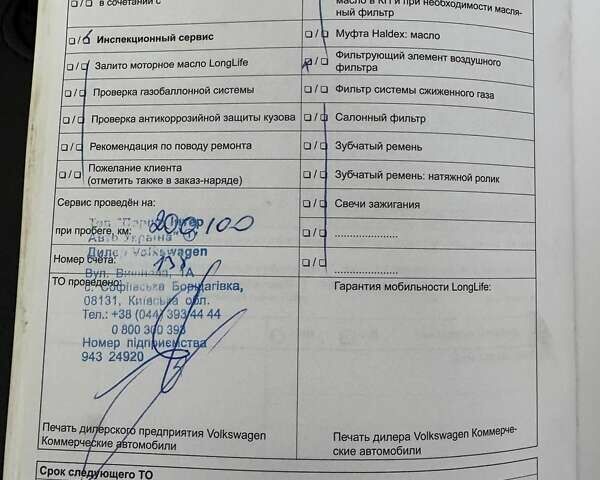 в сочетании с
❏/❏ Инспекционный сервис
❏/❏ Залито моторное масло LongLife
❏/❏ Проверка газобаллонной системы
❏/❏ Проверка антикоррозийной защиты кузова
❏/❏ Рекомендация по поводу ремонта
❏/❏ Пожелание клиента
(отметить также в заказ-наряде)
Сервис проведён на:
при пробеге, км:
Номер счёта:
ТО проведено:
Авто Україна"
Дилер Volkswagen
Вул. 1А
с. Софіївська Борщагівка,
08131, Київська обл.
Тел.: +38 (044) 393 44 44
0 800 300 393
Номер підприємства
943 24920
Печать дилерского предприятия Volkswagen
Коммерческие автомобили
Срок следующего ТО
масло в КП и при необходимости масля-
ный фильтр
❏/❏ Муфта Haldex: масло
❏/❏ Фильтрующий элемент воздушного
фильтра
❏/❏ Фильтр системы сжиженного газа
❏/❏ Салонный фильтр
❏/❏ Зубчатый ремень
❏/❏ Зубчатый ремень: натяжной ролик
❏/❏ Свечи зажигания
❏/❏ ....................
❏/❏ ....................
Гарантия мобильности LongLife:
Печать дилера Volkswagen Коммерче-
ские автомобили